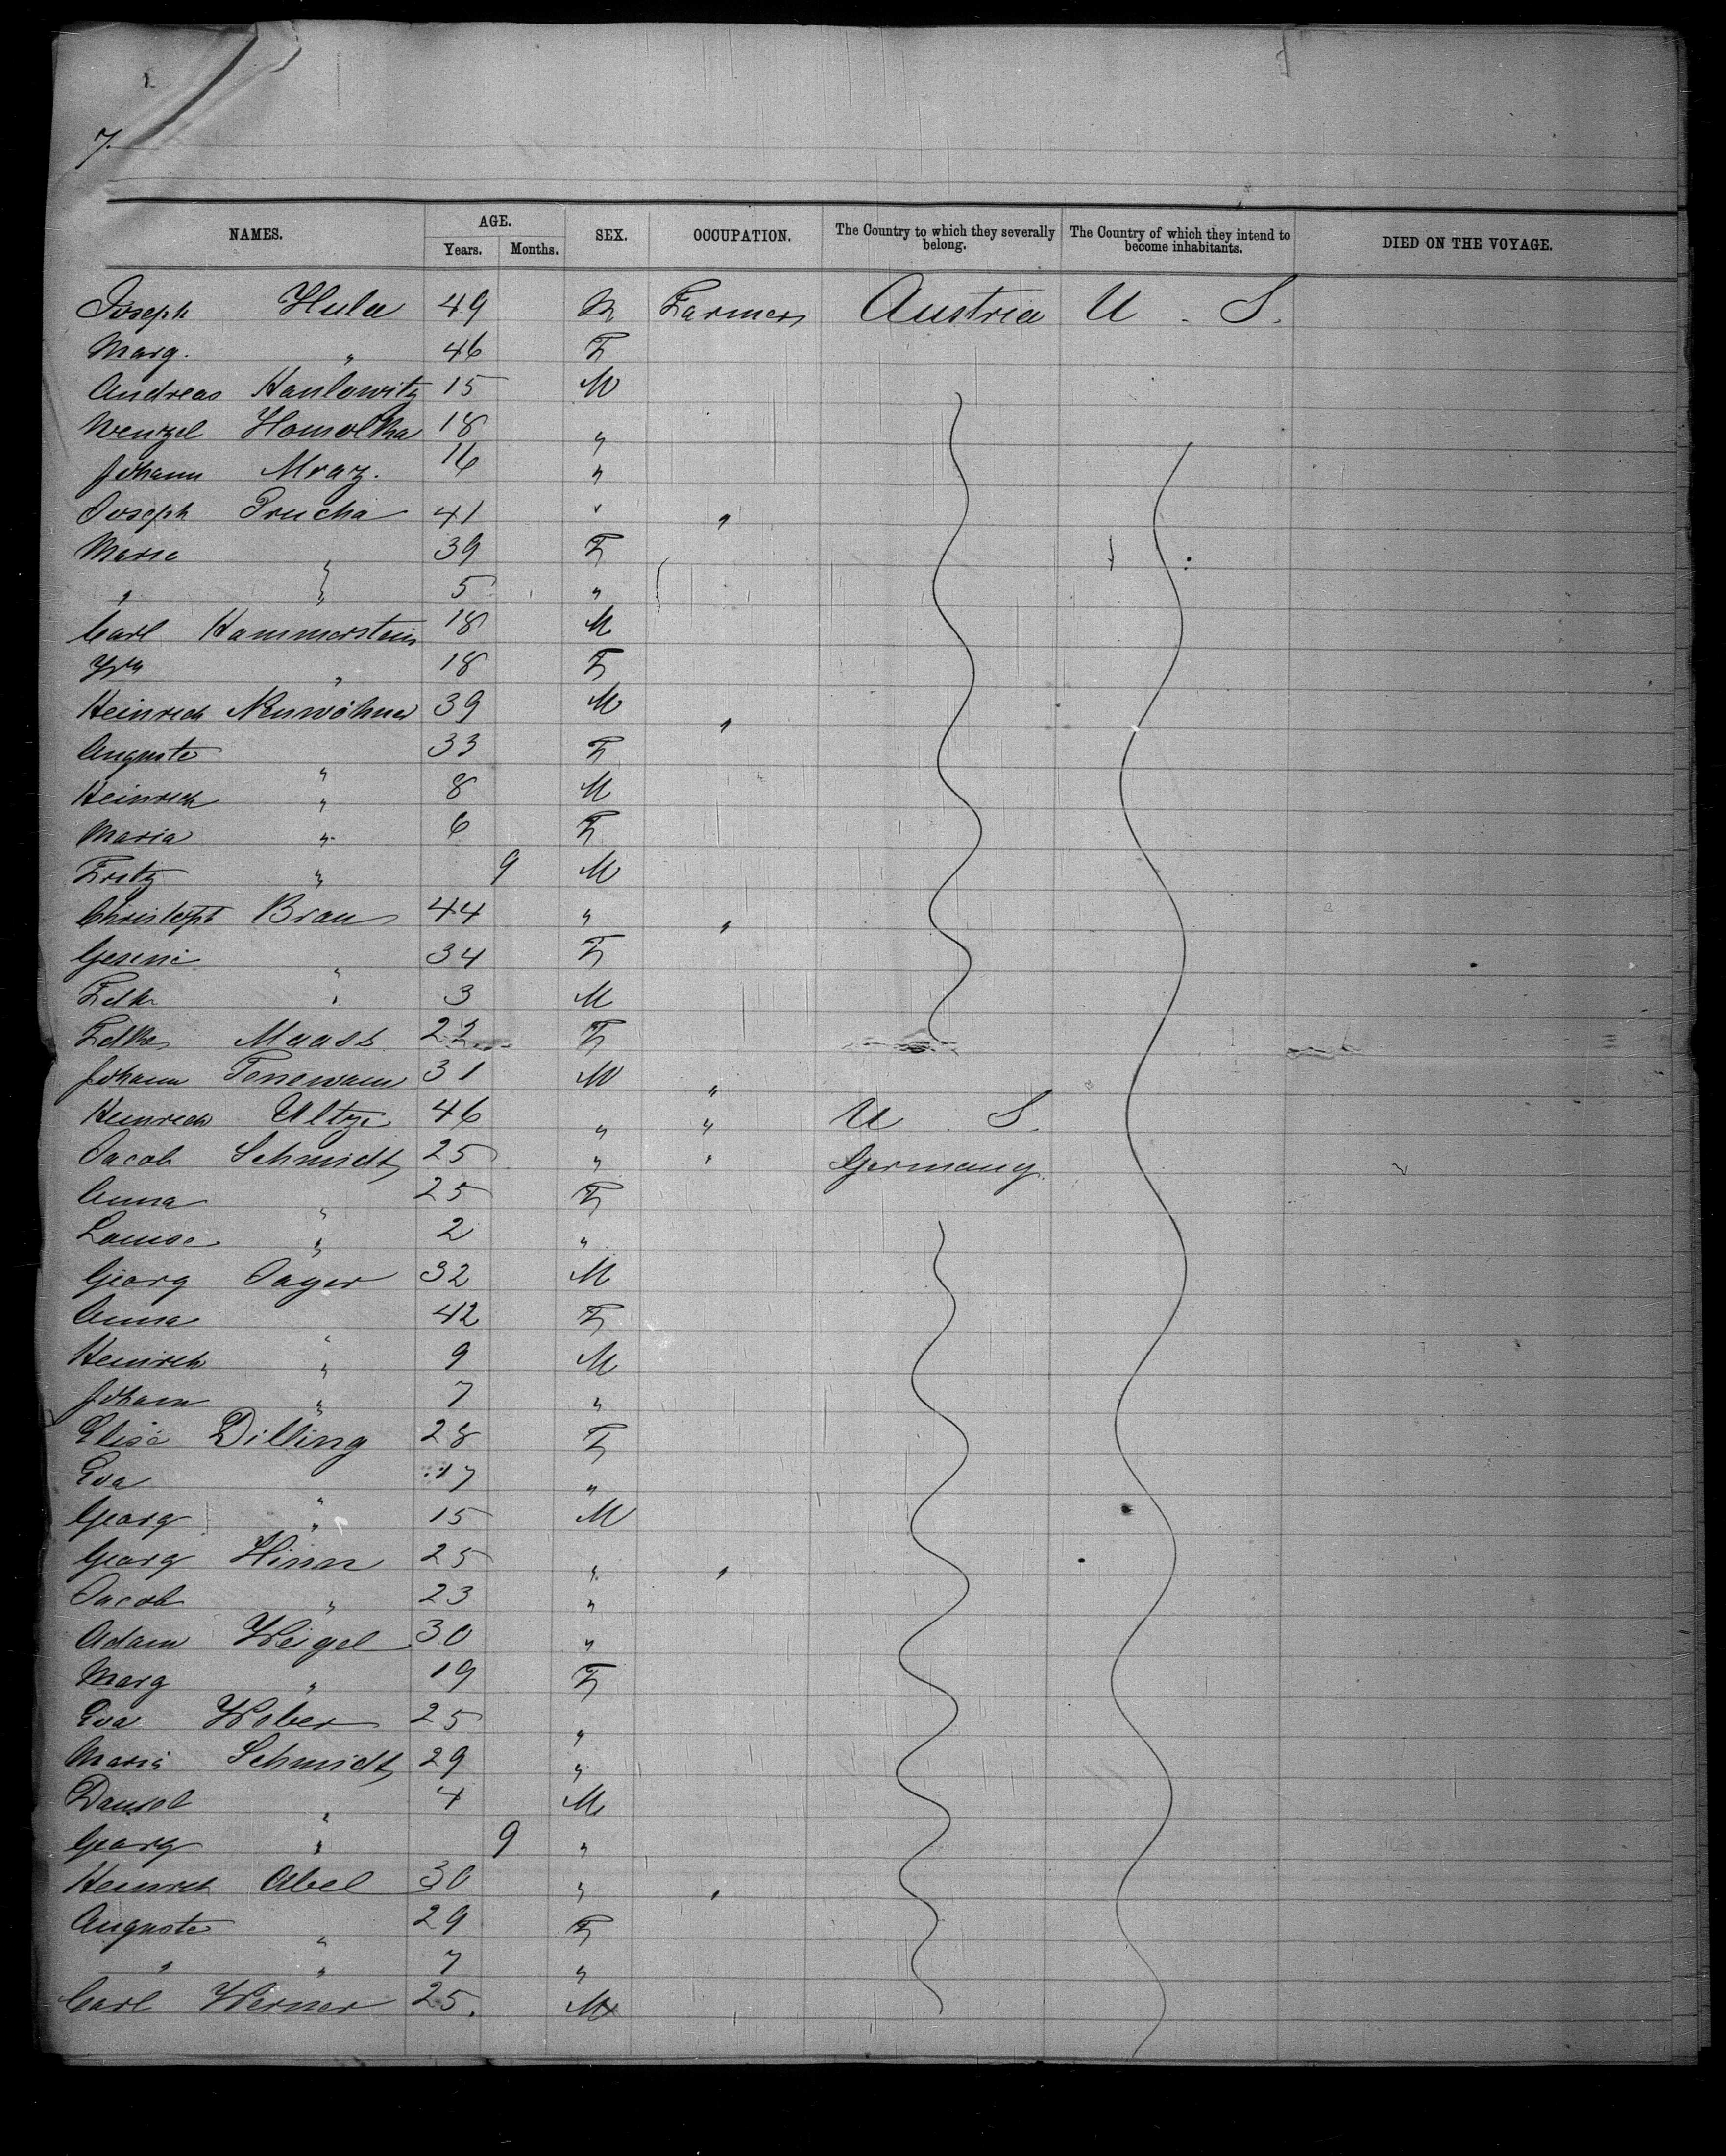 7.
NAMES. AGE. SEX. OCCUPATION. The Country to which they severally belong. The Country of which they intend to become inhabitants. DIED ON THE VOYAGE.
Years. Months.
Joseph Hula 49 M Farmer Austria U. S.
Marg. " 46 F
Andreas 15 M
Wenzel Homolka 18 "
Johann Mraz. 16 "
Joseph Prucha 41 " "
Maria " 39 F
" " 5 "
Carl Hammerstein 18 M
" 18 F
Heinrich 39 M "
Auguste " 33 F
Heinrich " 8 M
Maria " 6 F
Fritz " 9 M
Christoph Brau 44 " "
" 34 F
" 3 M
Maass 22 F
Johann 31 M "
Heinrich 46 " " U. S.
Jacob Schmidt 25 " " Germany.
Anna " 25 F
Louise " 2 "
Georg Jager 32 M
Anna " 42 F
Heinrich " 9 M
Johann " 7 "
Elise Dilling 28 F
Eva " 17 "
Georg " 15 M
Georg Hinn 25 " "
Jacob " 23 "
Adam Weigel 30 "
Marg " 19 F
Eva Weber 25 "
Maria Schmidt 29 "
Daniel " 4 M
Georg " 9 "
Heinrich Abel 30 " "
Auguste " 29 F
" " 7 "
Carl Werner 25. M